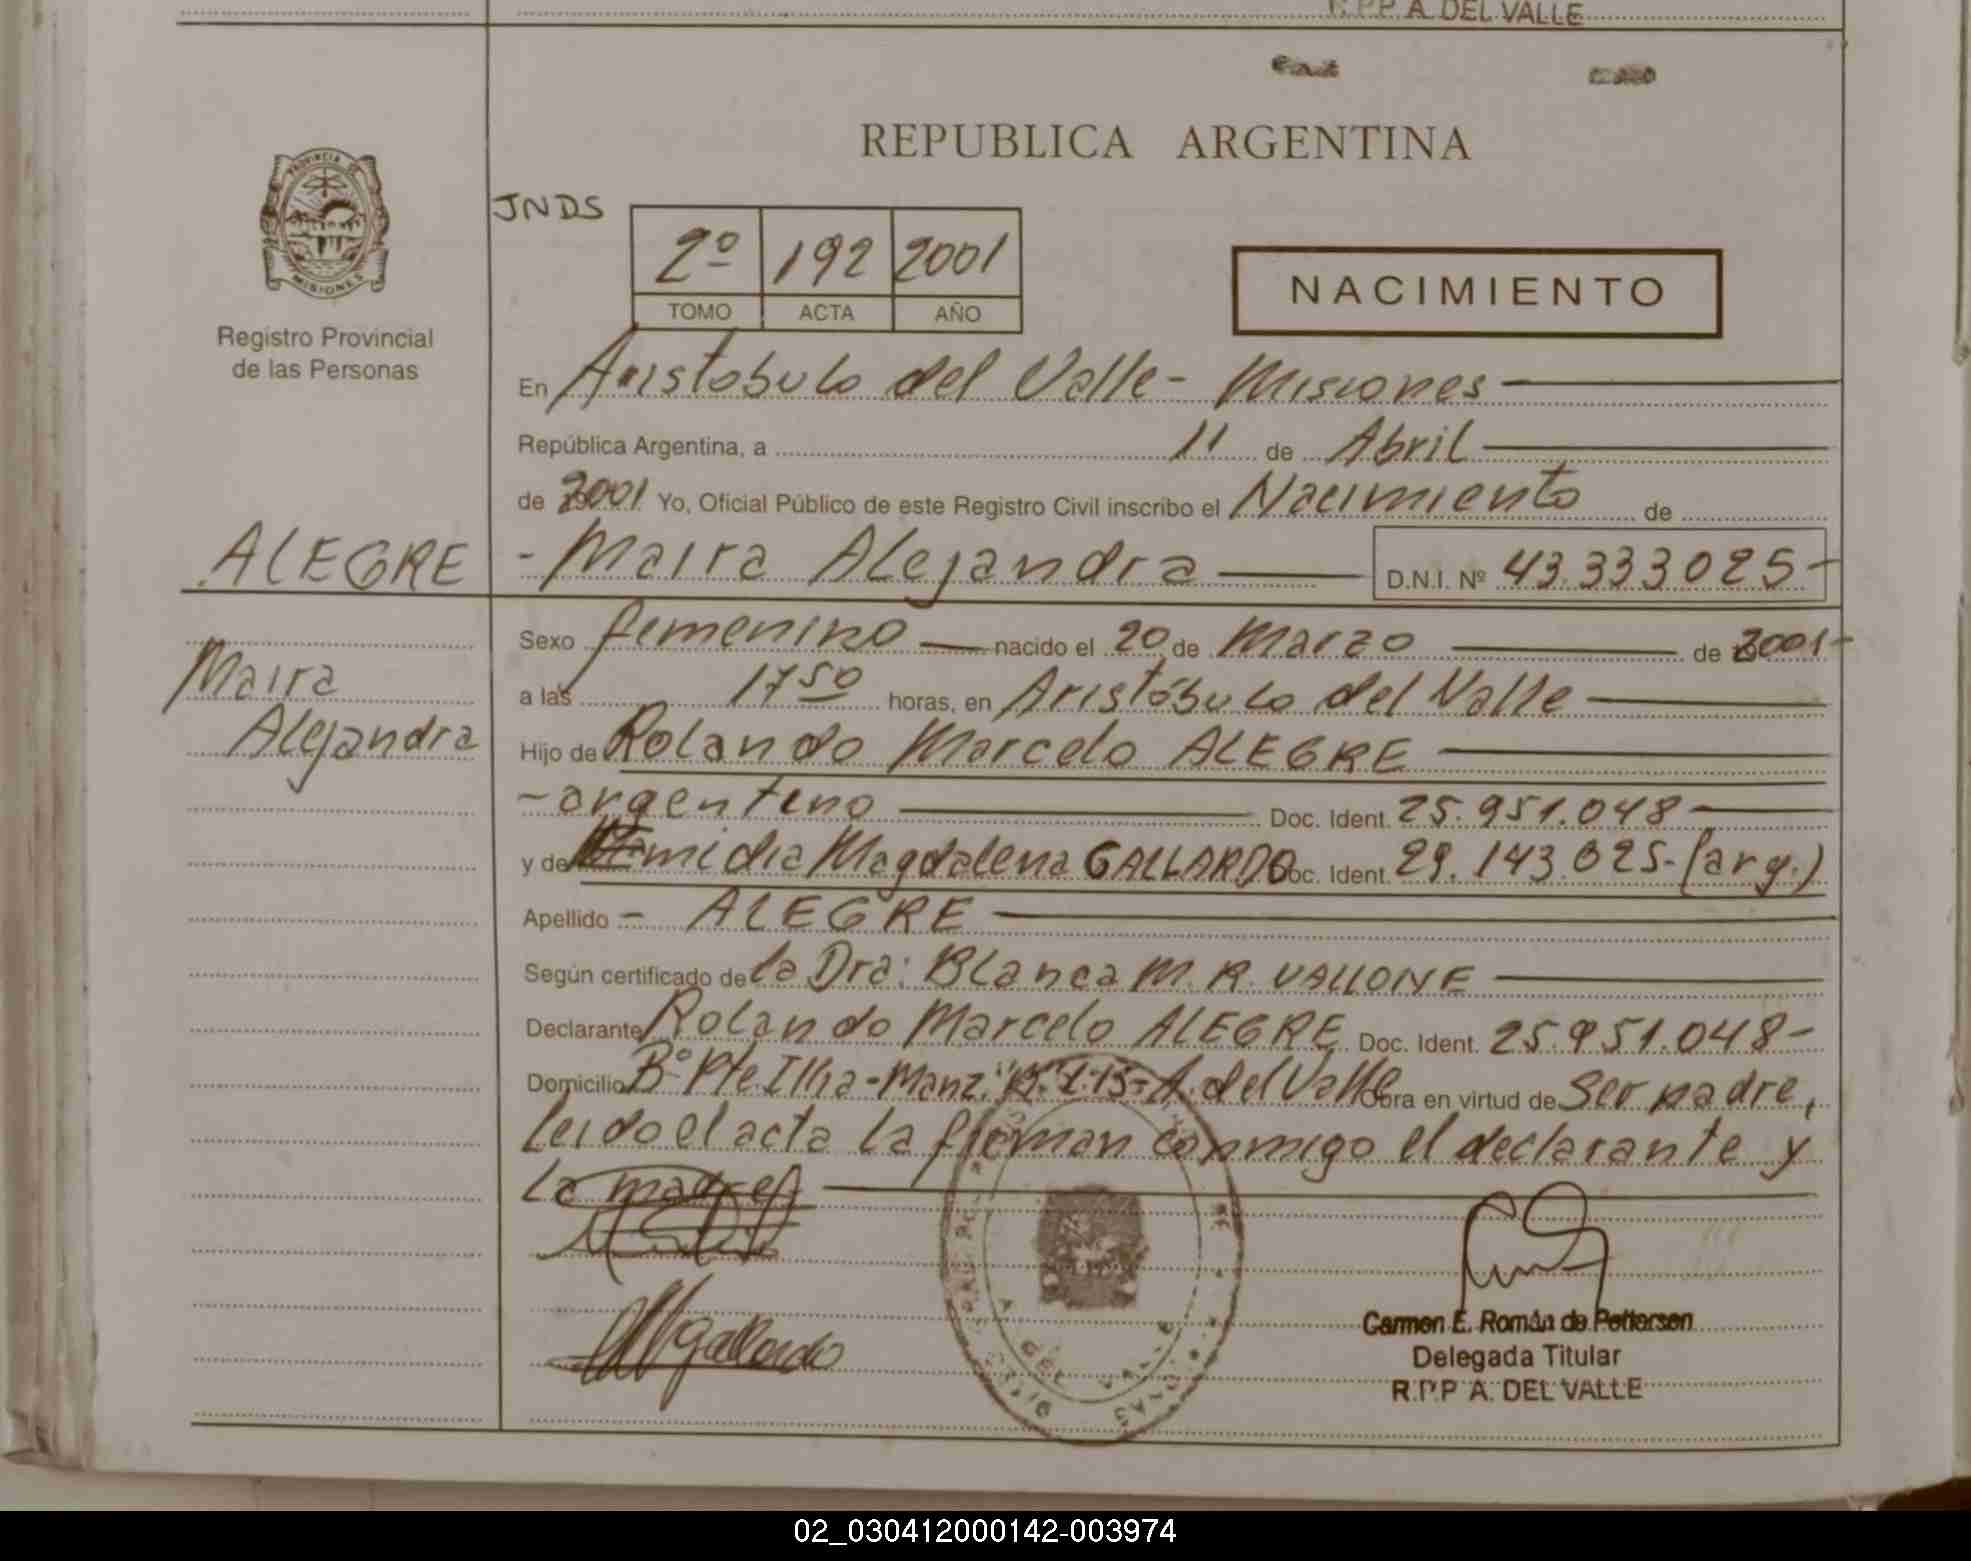 R.P.P. A. DEL VALLE
REPUBLICA ARGENTINA
PROVINCIA DE
MISIONES
Registro Provincial
de las Personas
JNDS
2º 192 2001
TOMO ACTA AÑO
NACIMIENTO
En Aristobulo del Valle - Misiones
República Argentina, a 11 de Abril
de 2001 Yo, Oficial Público de este Registro Civil inscribo el Nacimiento de
ALEGRE - Maira Alejandra D.N.I. Nº 43.333.025-
Sexo femenino nacido el 20 de Marzo de 2001-
Maira
a las 17 50 horas, en Aristóbulo del Valle
Alejandra
Hijo de Rolando Marcelo ALEGRE
- argentino Doc. Ident. 25.951.048
y de midia Magdalena GALLARDO Doc. Ident. 29.143.025- (arg.)
Apellido - ALEGRE
Según certificado de la Dra: Blanca M. R. VALLONE
Declarante Rolando Marcelo ALEGRE Doc. Ident. 25.951.048-
Domicilio Bº Pte Illia - Manz. L.15- A. del Valle Obra en virtud de Ser padre,
leido el acta la firman conmigo el declarante y
la madre
MGallardo
Carmen E. Román de Pettersen
Delegada Titular
R.P.P A. DEL VALLE
02_030412000142-003974